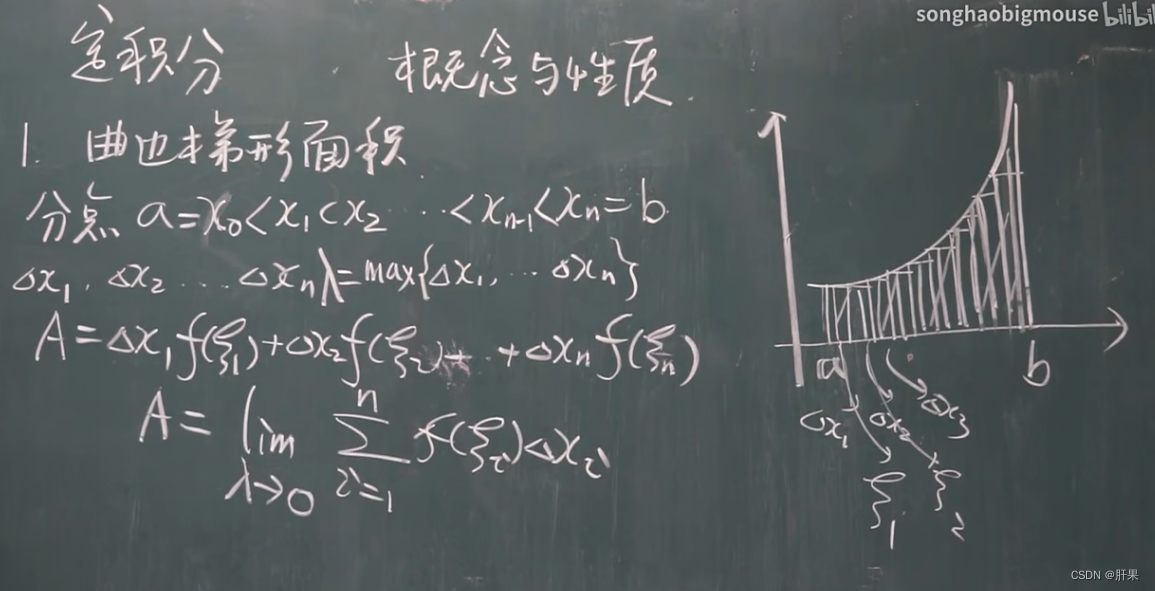 songhaobigmouse bilibil
定积分 概念与性质.
1. 曲边梯形面积.
分点 a=x₀<x₁<x₂ ‥‥ <xₙ₋₁<xₙ=b.
Δx₁, Δx₂ ‥‥ Δxₙ λ=max{Δx₁, ‥‥ Δxₙ}
A=Δx₁f(ξ₁)+Δx₂f(ξ₂)+‥+Δxₙf(ξₙ)
A= lim_{λ→0} ∑_{i=1}^{n} f(ξᵢ)Δxᵢ
a b
Δx₁ Δx₂ Δx₃
ξ₁ ξ₂
CSDN @肝果